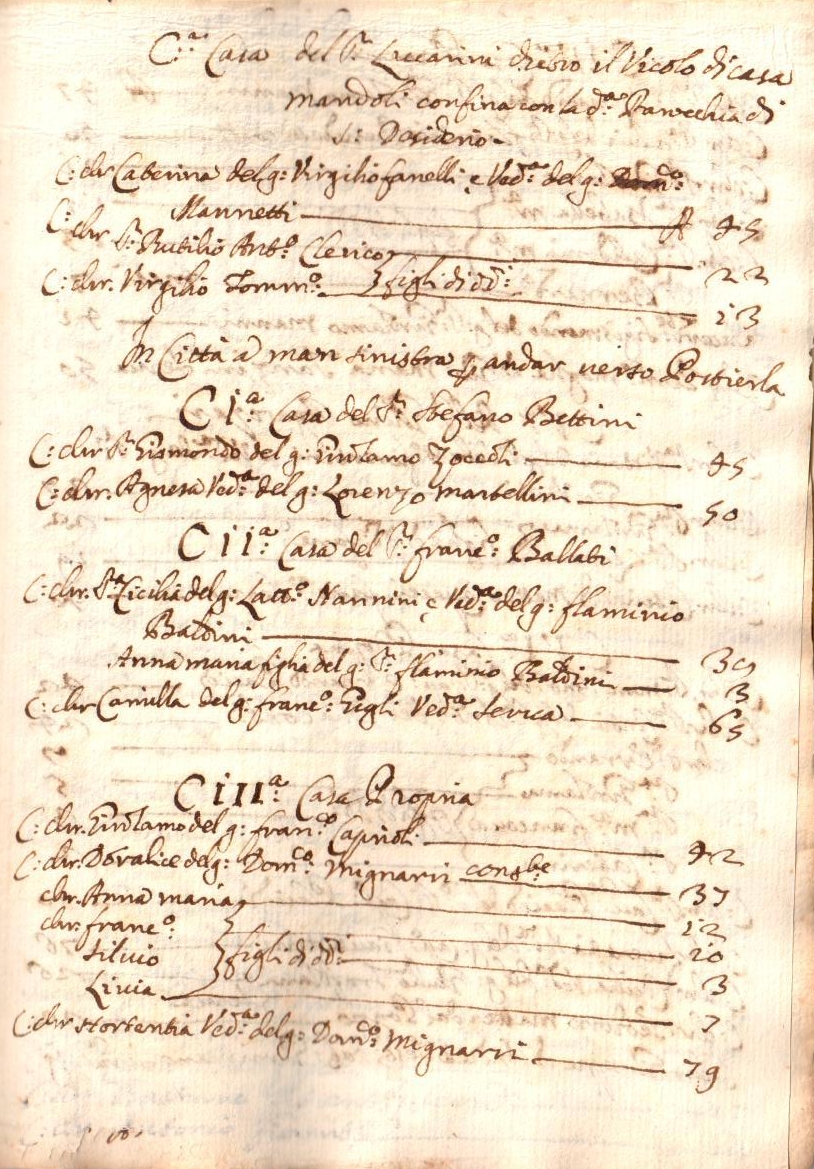 C:ª Casa del S:r Luccarini dietro il Vicolo di casa
mandoli confina con la d:ª Parrecchia di
S: Desiderio
C: chr Caterina del q: Virgilio fanelli, e Ved:ª del q: Dom:co
Mannetti A 45
C: chr S:r Rutilio Ant:o Clerico 22
C: chr. Virgilio Tomm:o } figli di dd:i 13
In Città a man sinistra p andar verso Postierla
CIª: Casa del S:r Stefano Bettini
C: chr S:r Gismondo del q: Girolamo Zoccoli 45
C: chr. Agnesa Ved:ª del q: Lorenzo martellini 50
CIIª: Casa del S:r franc:o Ballati
C: chr. S:ra Cicilia del q: Latt:o Nannini, e Ved:ª del q: flaminio
Baldini 39
Anna maria figlia del q: S:r flaminio Baldini 3
C: chr Camilla del q: franc:o Gigli Ved:ª Serva 65
CIIIª: Casa Propria
C: chr. Girolamo del q: fran:co Caprioli 42
C: chr. Doralice del q: Dom:co Mignarri cons:te 37
chr. Anna maria 12
chr. franc:o 10
Silvio } figli di dd:i 3
Livia 7
C: chr Hortentia Ved:ª del q: Dom:co Mignarri 79